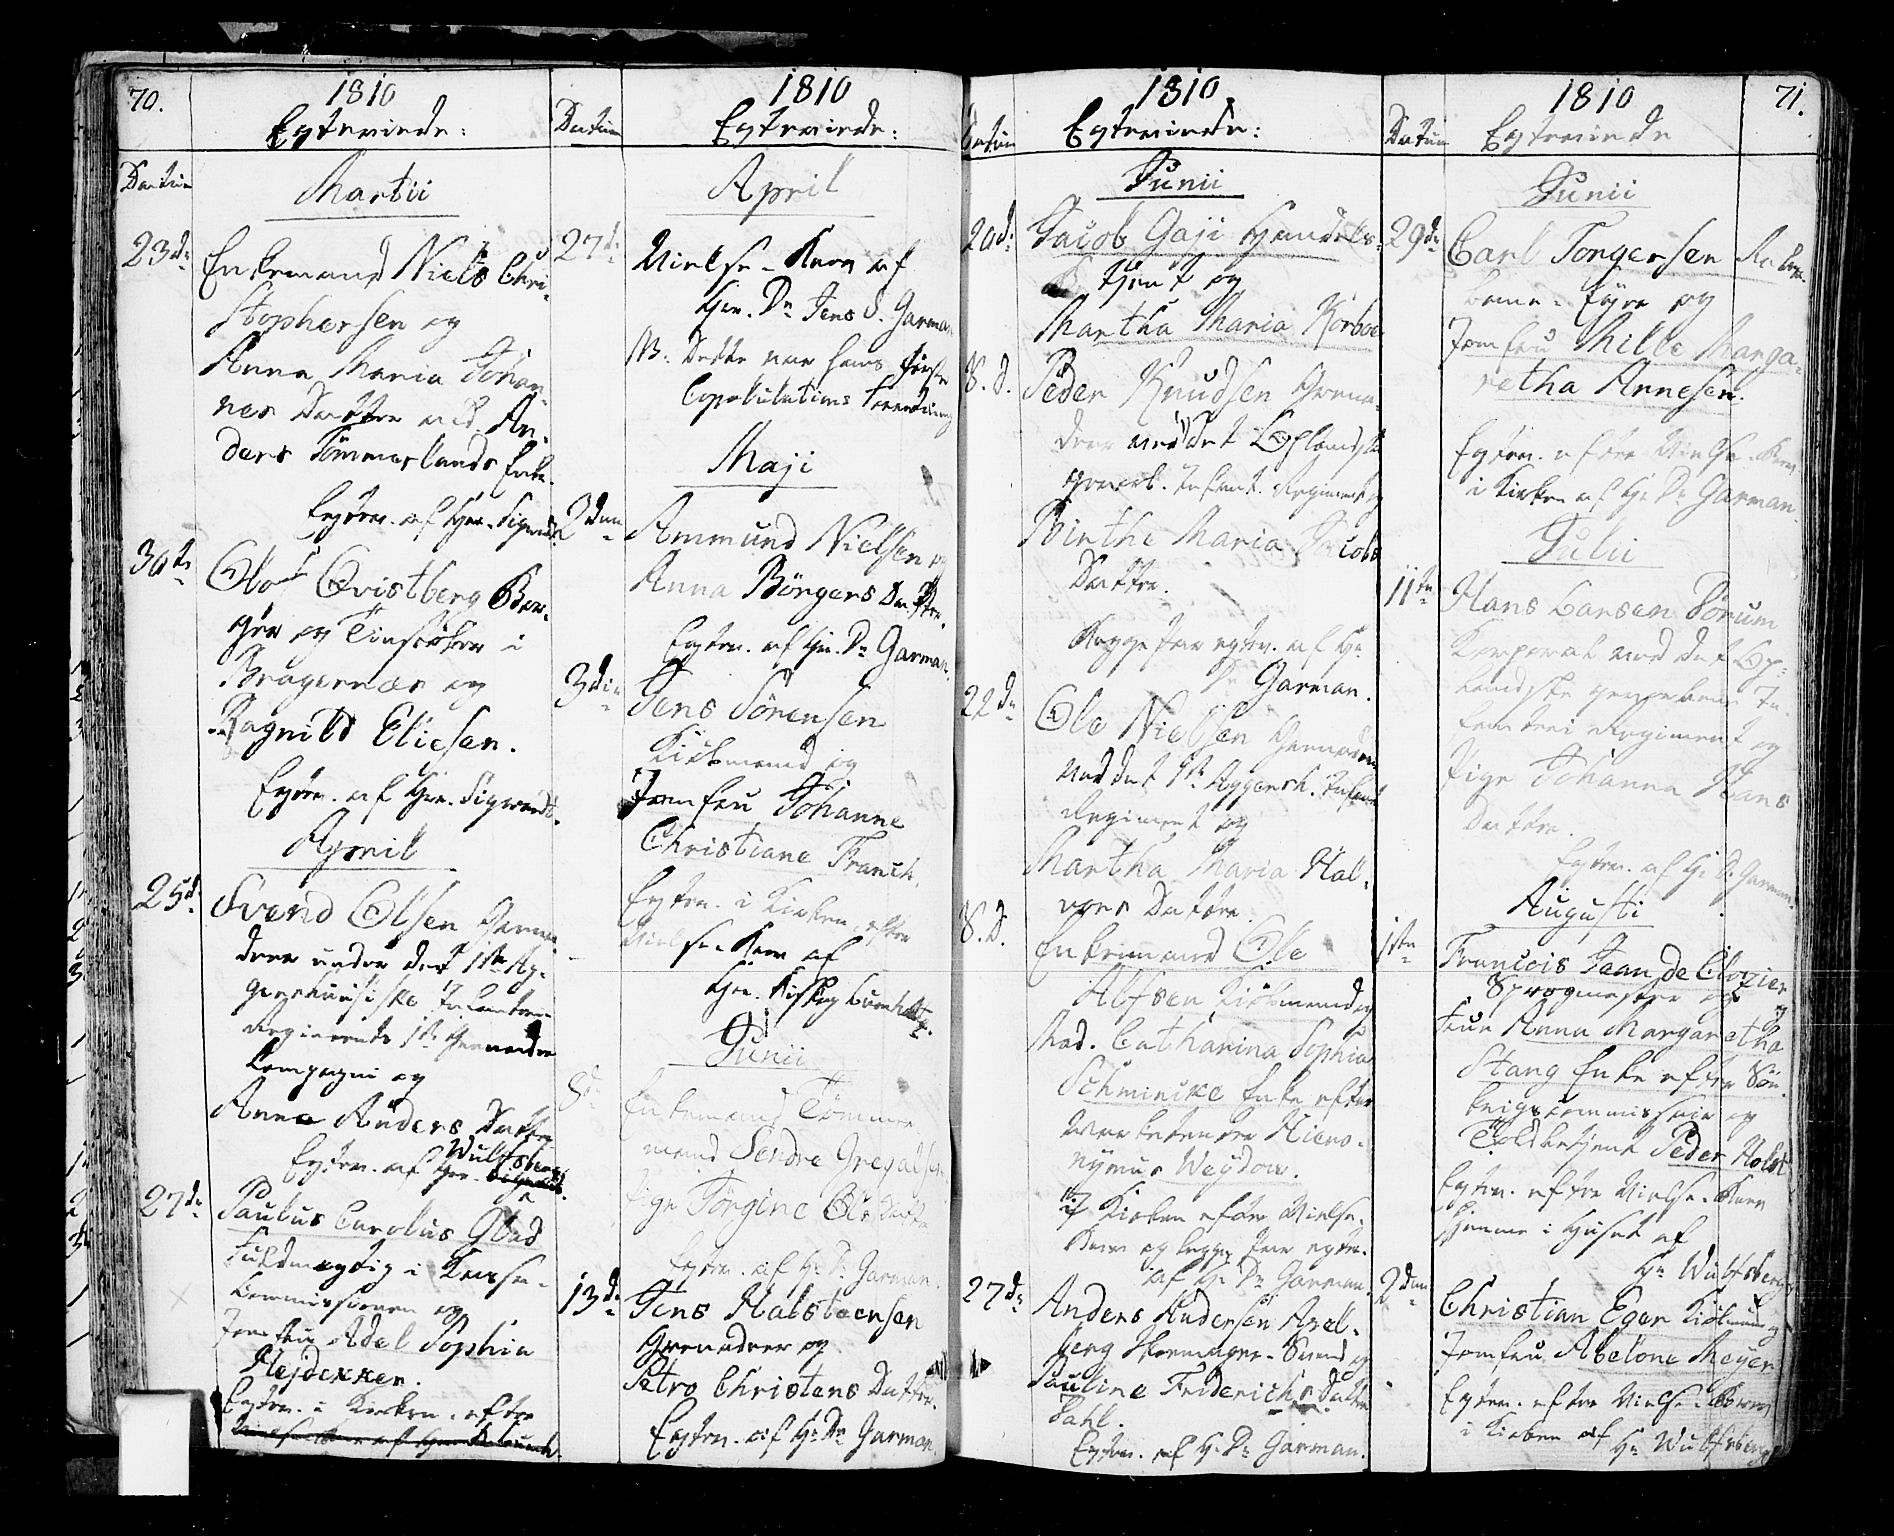 70.
1810
Egteviede:
Datum
Martii
23de
Enkemand Niels Chri-
stophersen og
Anna Maria Johan-
nes Datter afd. An-
ders Tömmerlands Enke.
Egtev. af Hr. Sigvardt
30te
Olof Qvistberg Bor-
ger og i
Bragernæs og
Ragnild Eliesen.
Egtev. af Hr. Sigvardt.
April
25de
Svend Olsen Grena-
deer under det 1ste Ag-
gershuusiske Infanterie
Regiments 1ste Grenadeer
Compagni og
Anne Anders Datter
Wulfsberg
Egtev. af Hr.
27de
Paulus Carolus Glad
Fuldmegtig i
Commissionen og
Jomfru Adel Sophia
Hejdekker.
Egtev. i Kirken efter
Datum
1810
Egteviede:
April
27de
Vielse-Brev af
Hr. Dr. Jens S. Garman
NB. Dette var hans første
Copulations Forretning
Maji
2den
Ammund Nielsen og
Anna Börgers Datter.
Egtev. af Hr. Dr. Garman.
3die
Jens Sörensen
Kiöbmand og
Jomfru Johanne
Christiane Franch.
Egtev. i Kirken efter
Vielse-Brev af
Hr. Biskop
Junii
8de
Enkemand Tömmer-
mand Sendre Gregalsen
Pige Törgine Ols Datter
Egtev. af Hr. Dr. Garman.
13de
Jens Halsteensen
Grenadeer og
Petro Christens Datter.
Egtev. af Hr. Dr. Garman.
Datum
1810
Egteviede:
Junii
20de
Jacob Gaji Handels-
tjent og
Martha Maria Korboe
S. D.
Peder Knudsen Grena-
deer ved det Oplandske
gevorb. Infant. Regiment og
Birthe Maria Jacobs
Datter.
Begge Par egtev. af Hr.
Dr. Garman.
22de
Ole Nielsen Grenadeer
ved det 1ste Aggersh. Infant
Regiment og
Martha Maria Hal-
vors Datter.
S. D.
Enkemand Ole
Alfsen Kiöbmand og
Mad. Catharina Sophia
Schmincke Enke efter
Hiero-
nymus Weydow.
I Kirken efter Vielse-
Brev og begge Par egtev.
af Hr. Dr. Garman.
27de
Anders Andersen Axel-
berg Skomager-Svend og
Pauline Friderichs Datter
Dahl.
Egtev. af Hr. Dr. Garman.
71.
Datum
1810
Egteviede
Junii
29de
Carl Torgersen
og
Jomfru Mille Marga-
retha Annesen.
Egtev. efter Vielse-Brev
i Kirken af Hr. Dr. Garman.
Julii
11te
Hans Larsen Sörum
Korporal ved det Op-
landske gevorbene In-
fanteri Regiment og
Pige Johanna Hans
Datter.
Egtev. af Hr. Dr. Garman.
Augusti
1ste
Francois Jean de Clozier
Sprogmester og
Frue Anna Margaretha
Stang Enke efter Söe
krigscommissair og
Toldbetjent Peder Holst
Egtev. efter Vielse-Brev
hjemme i Huset af
Hr. Wulfsberg
2den
Christian Eger Kiöbmand og
Jomfru Abelone Meyer
Egtev. efter Vielse-Brev
i Kirken af Hr. Wulfsberg